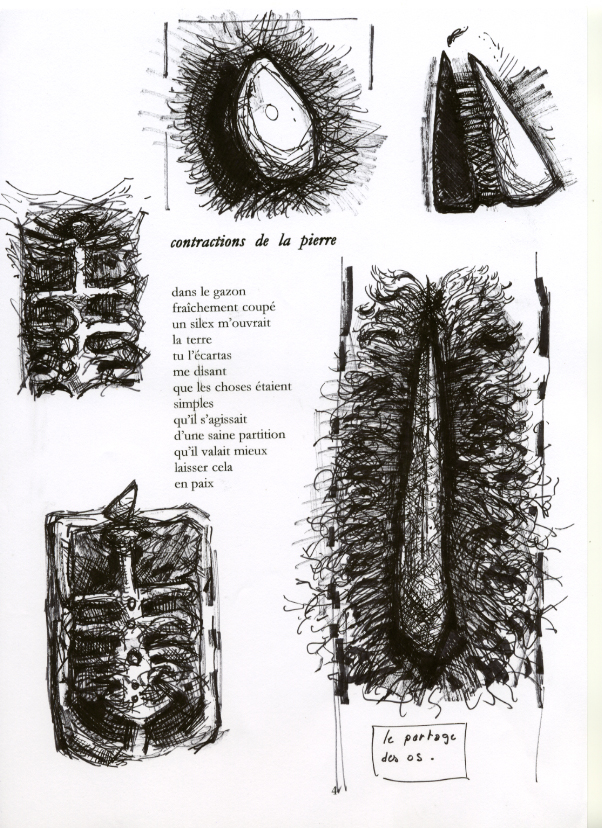 contractions de la pierre
dans le gazon
fraîchement coupé
un silex m'ouvrait
la terre
tu l'écartas
me disant
que les choses étaient
simples
qu'il s'agissait
d'une saine partition
qu'il valait mieux
laisser cela
en paix
le partage
des os.